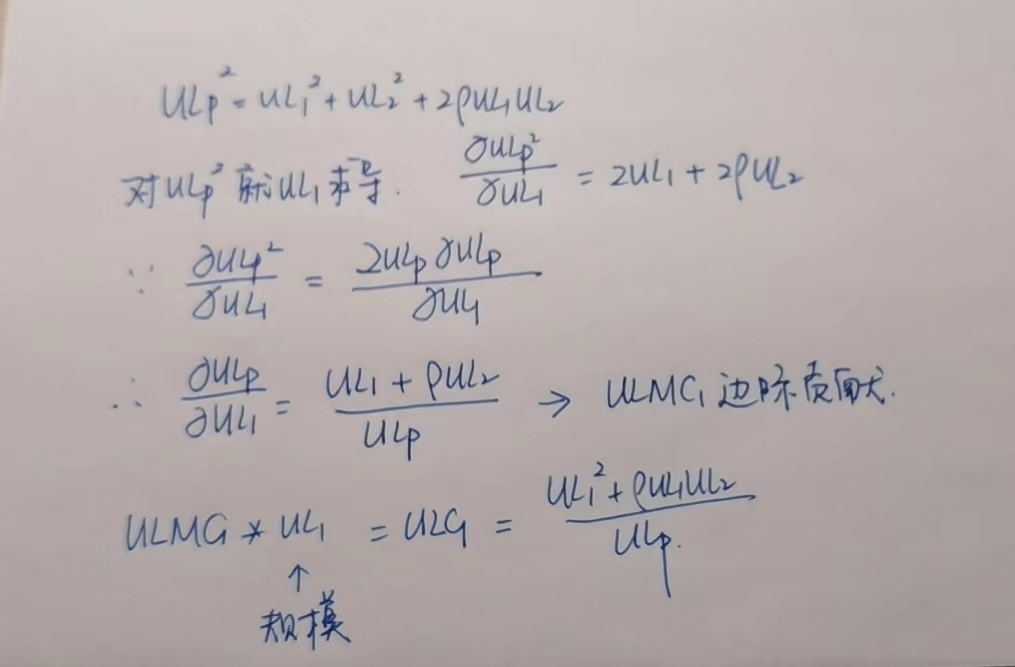 ULp² = UL₁² + UL₂² + 2ρUL₁UL₂
对ULp²就UL₁求导. ∂ULp²/∂UL₁ = 2UL₁ + 2ρUL₂
∵ ∂ULp²/∂UL₁ = 2ULp∂ULp/∂UL₁
∴ ∂ULp/∂UL₁ = UL₁ + ρUL₂/ULp → ULMC₁ 边际贡献.
ULMC₁ * UL₁ = ULC₁ = UL₁² + ρUL₁UL₂/ULp.
↑
规模